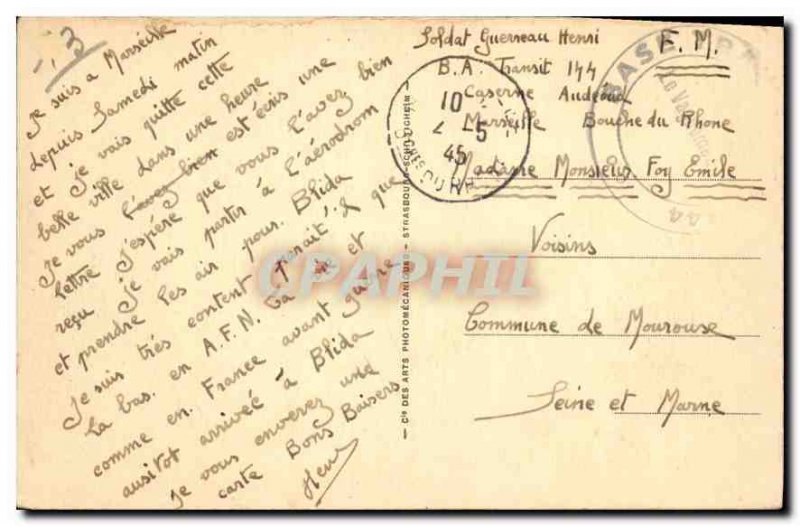 Je suis a Marseille
depuis Samedi matin
et je vais quitte cette
belle ville dans une heure
Je vous l'avez bien est écris une
lettre J'espère que vous l'avez bien
reçu Je vais partir à l'aérodrom
et prendre les air pour Blida
Je suis très content parait 'il que
La bas. en A.F.N. La vie et
comme en France avant guerre
ausitot arriveé à Blida
Je vous enverez une
carte Bons Baisers
Henri
Cie DES ARTS PHOTOMÉCANIQUES - STRASBOURG-SCHILTIGHEIM
Soldat Guerneau Henri
F.M.
B.A. Transit 144
Caserne Audeoud
Marseille Bouche du Rhone
Madame Monsieur Foy Emile
Voisins
Commune de Mourouse
Seine et Marne
10
2 -5
45
BASE
44
CPAPHIL